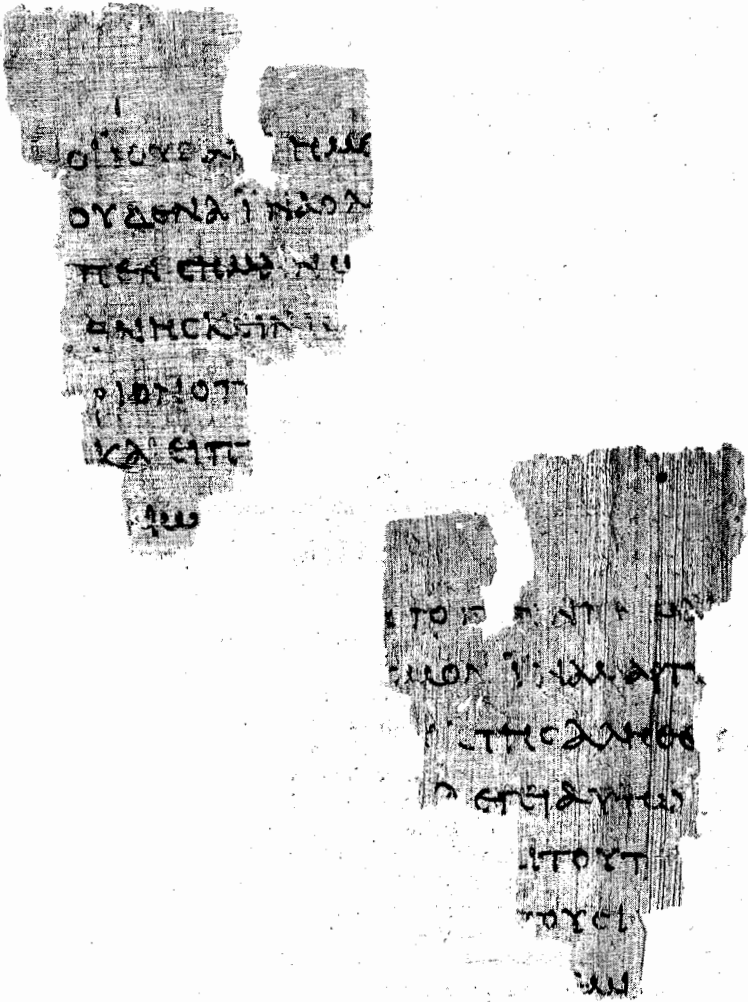 ΟΙ ΙΟΥΔΑΙ ΗΜΕ
ΟΥΔΕΝΑ ΙΝΑ Ο Λ
ΠΕΝ ϹΗΜΑΙΝΩ
ΘΝΗϹΚΕΙΝ ΙϹ
ΡΙΟΝ Ο Π
ΚΑΙ ΕΙΠ
ΑΙΩ
ΤΟ Γ ΝΝΗΜΑΙ
ϹΜΟΝ ΙΝΑ ΜΑΡΤΥ
ΤΗϹ ΑΛΗΘΕ
ΛΕΓΕΙ ΑΥΤΩ
ΑΙ ΤΟΥΤ
ΤΟΥϹ Ι
ΜΙ